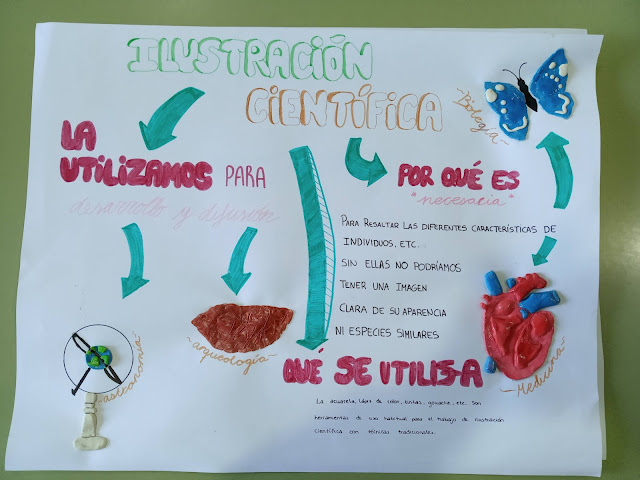 ILUSTRACIÓN
CIENTÍFICA
LA
UTILIZAMOS PARA
desarrollo y difusión
POR QUÉ ES
"necesaria"
Biología
PARA RESALTAR LAS DIFERENTES CARACTERÍSTICAS DE
INDIVIDUOS, ETC.
SIN ELLAS NO PODRÍAMOS
TENER UNA IMAGEN
CLARA DE SU APARENCIA
NI ESPECIES SIMILARES
astronomía
arqueología
Medicina
QUÉ SE UTILISA
La acuarela, lápiz de color, tintas, gouache, etc. Son
herramientas de uso habitual para el trabajo de ilustración
científica con técnicas tradicionales.